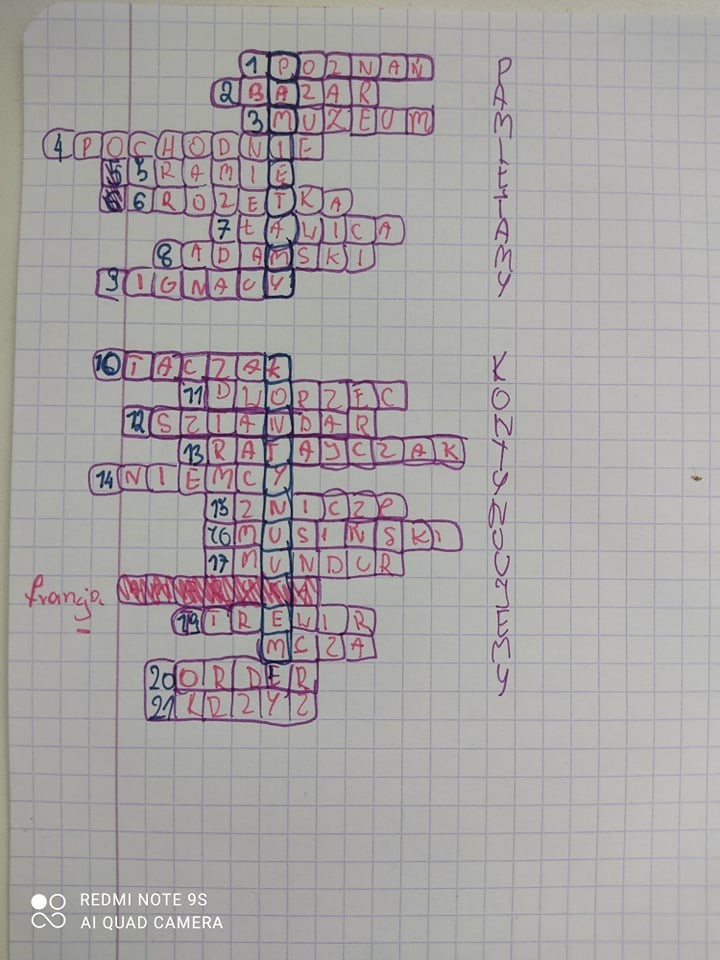 1 POZNAŃ
2 BAZAR
3 MUZEUM
4 POCHODNIE
5 5 RAMIE
6 ROZETKA
7 ŁAWICA
8 ADAMSKI
9 IGNACY
PAMIĘTAMY
10 TACZAK
11 DWORZEC
12 SZTANDAR
13 RATAJCZAK
14 NIEMCY
15 ZNICZE
16 MUSIŃSKI
17 MUNDUR
francja
19 TREWIR
MCZA
20 ORDER
21 KRZYZ
KONTYNUUJEMY
REDMI NOTE 9S
AI QUAD CAMERA